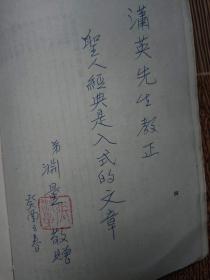 瀟英先生教正
聖人經典是入式的文章
弟淵量敬贈
癸酉年春